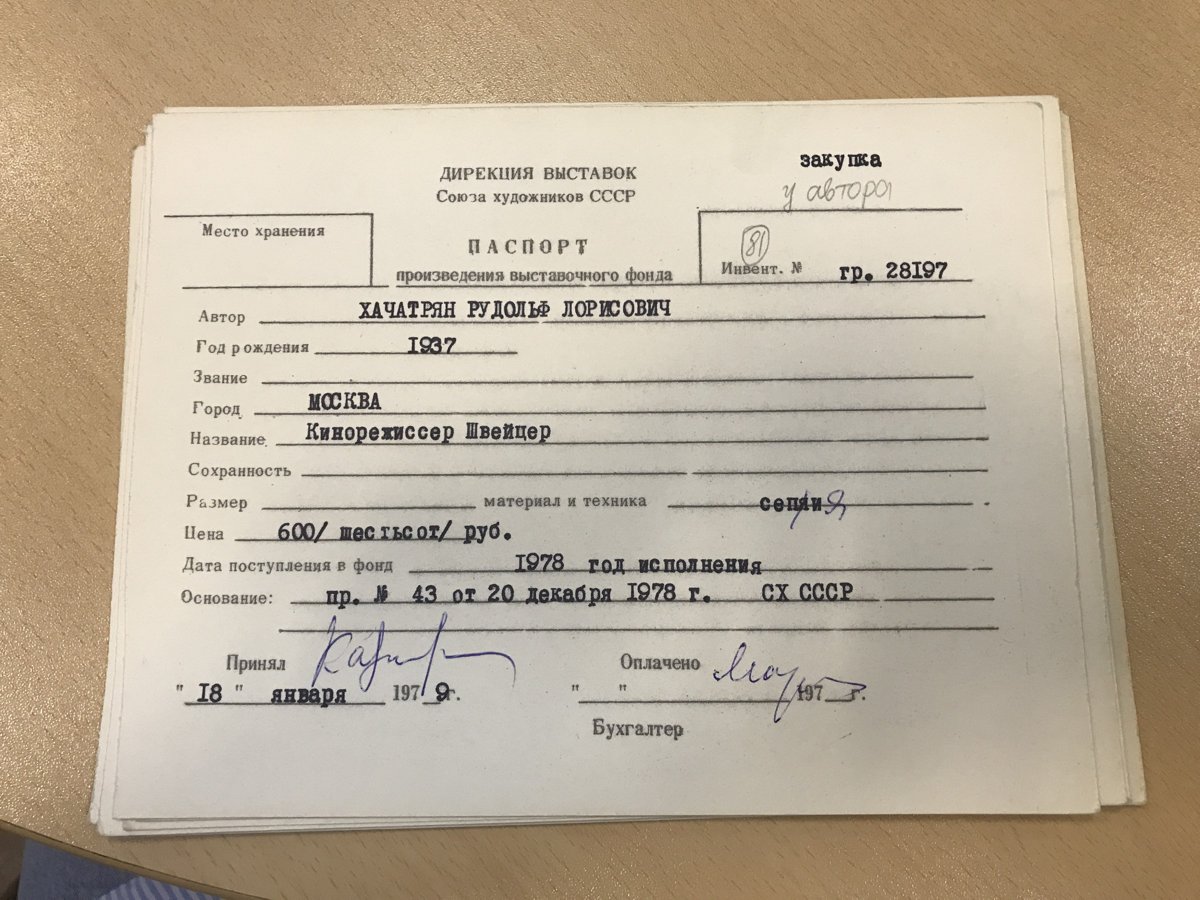 закупка
у автора
ДИРЕКЦИЯ ВЫСТАВОК
Союза художников СССР
Место хранения
ПАСПОРТ
произведения выставочного фонда
81
Инвент. № гр. 28197
Автор ХАЧАТРЯН РУДОЛЬФ ЛОРИСОВИЧ
Год рождения 1937
Звание
Город МОСКВА
Название Кинорежиссер Швейцер
Сохранность
Размер материал и техника сепия
Цена 600/ шестьсот/ руб.
Дата поступления в фонд 1978 год исполнения
Основание: пр. № 43 от 20 декабря 1978 г. СХ СССР
Принял Оплачено
" 18 " января 1979 г. " " 197 г.
Бухгалтер